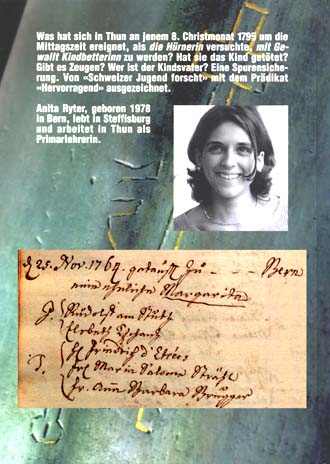 Was hat sich in Thun an jenem 8. Christmonat 1795 um die
Mittagszeit ereignet, als die Hürnerin versuchte, mit Ge-
wallt Kindbetterinn zu werden? Hat sie das Kind getötet?
Gibt es Zeugen? Wer ist der Kindsvater? Eine Spurensiche-
rung. Von «Schweizer Jugend forscht» mit dem Prädikat
«Hervorragend» ausgezeichnet.
Anita Ryter, geboren 1978
in Bern, lebt in Steffisburg
und arbeitet in Thun als
Primarlehrerin.
25. Nov. 1764. getauft zu - - - Bern
eine eheliche Margarita
Rudolf am Stutz
Elsbeth Tschanz
Friedrich d'
Maria Salome
Anna Barbara Brügger